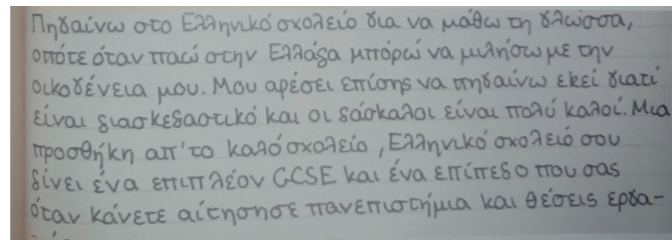 Πηγαίνω στο Ελληνικό σχολείο για να μάθω τη γλώσσα,
οπότε όταν παώ στην Ελλάδα μπόρώ να μιλήσω με την
οικογένεια μου. Μου αρέσει επίσης να πηγαίνω εκεί γιατί
είναι διασκεδαστικό και οι δάσκαλοι είναι πολύ καλοί. Μια
προσθήκη απ'το καλό σχολείο, Ελληνικό σχολειό σου
δίνει ένα επιπλέον GCSE και ένα επίπεδο που σας
όταν κάνετε αίτησησε πανεπιστήμια και θέσεις εργα-